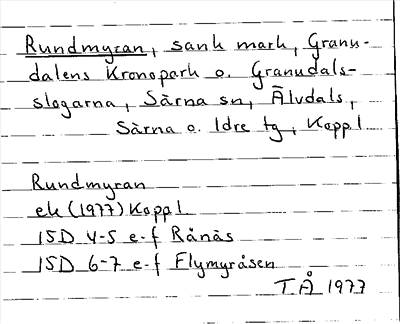 Rundmyran, sank mark, Granu-
dalens Kronopark o. Granudals-
slogarna, Särna sn, Älvdals,
Särna o. Idre tg, Koppl
Rundmyran
ek (1977) Koppl
15D 4-5 e-f Rånäs
15D 6-7 e-f Flymyråsen
TÅ 1977